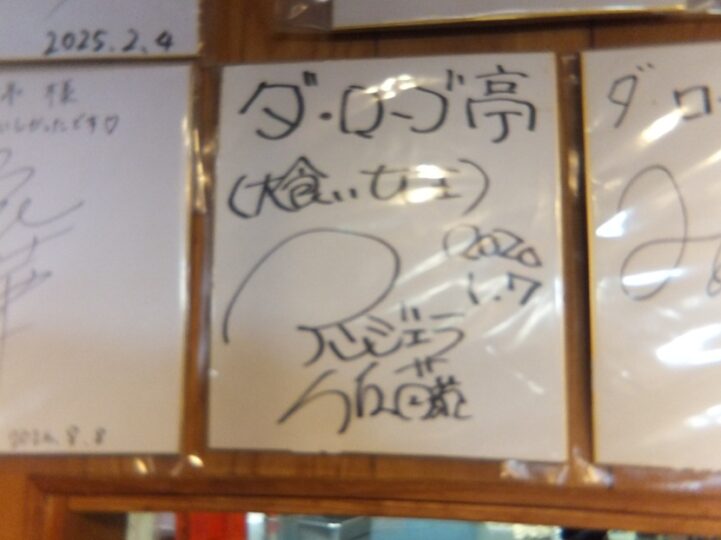 2025.2.4
様
いしかったです♡
2024.8.8
ダ・ローブ亭
(大食い女王)
2020
1.7
アンジェラ
佐藤
ダ・ロ